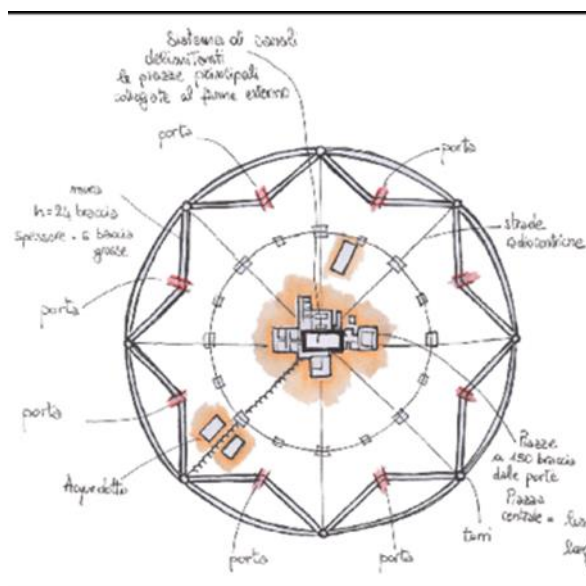 Sistema di canali
delimitanti
le piazze principali
collegate al fiume esterno
porta
porta
mura
h=24 braccia
spessore = 6 braccia
grosse
strade
radiocentriche
porta
porta
Acquedotto
Piazze
a 150 braccia
dalle porte
Piazza
centrale =
torri
porta
porta